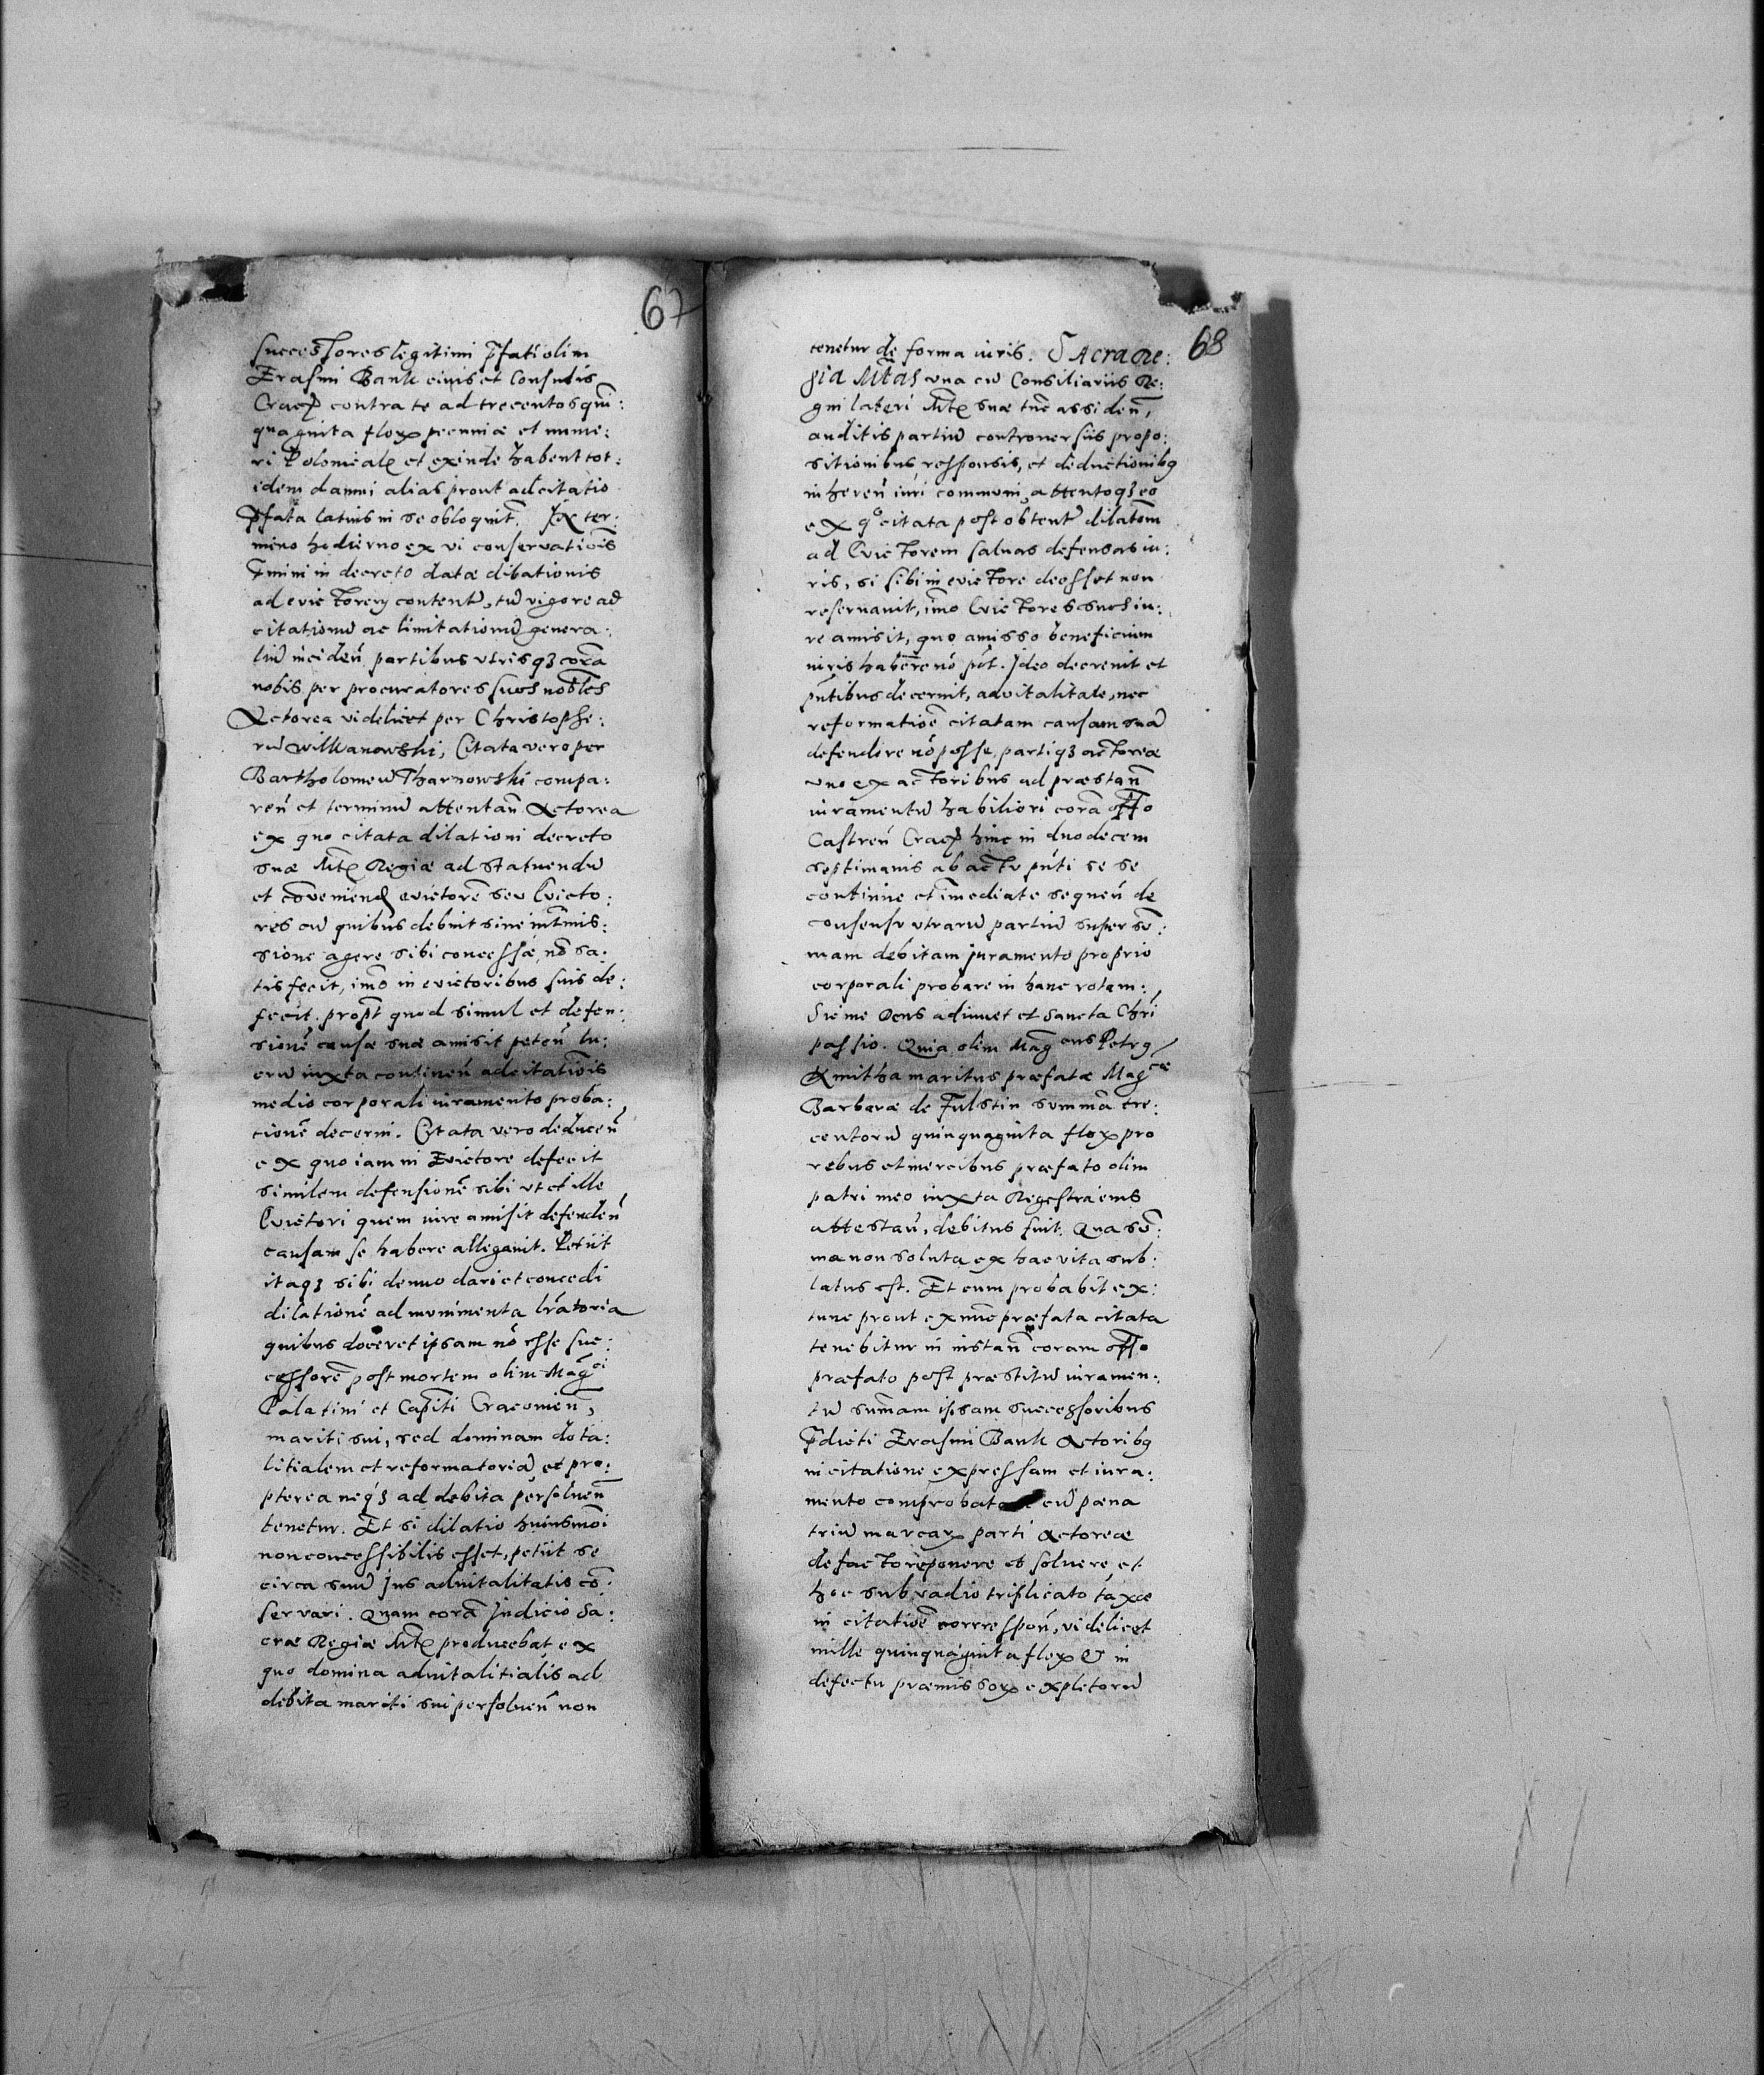 67
successores legitimi p̃fati olim
Erasmi Bank civis et Consulis
Crac̃ contra te ad trecentos qui:
quaginta floꝝ pecuniæ et nume:
ri Polonical et exinde habent tot:
idem damni alias prout adcitatio
p̃fata latius in se obloquit̃. In ter:
mino hodierno ex vi conservatiõis
t̃mini in decreto datæ dilationis
ad evictorem content̃, tũ vigore ad
citationũ ac limitationũ genera:
liũ inciden̄ partibus utrisqꝫ corã
nobis per procuratores suos nobles
Actorea videlicet per Christophe:
rũ Wilkanowski, Citata vero per
Bartholomeũ Tharnowski compa:
ren̄ et terminũ attentan̄ Actorea
ex quo citata dilationi decreto
suæ Mtis Regiæ ad statuendũ
et conveniend evictorẽ seu Evicto:
res cũ quibus debuit sine intmis:
sione agere sibi concessæ, nõ sa:
tis fecit, imo in evictoribus suis de:
fecit. propt̃ quod simul et defen:
sionẽ causæ suæ amisit peten̄ lu:
crũ iuxta continen̄ adcitatiõis
medio corporali iuramento proba:
tionẽ decerni. Citata vero deducen̄
ex quo iam in Evictore defecit
similem defensionẽ sibi ut et ille
Evictori quem iure amisit defenden̄
causam se habere allegavit. Petiit
itaqꝫ sibi denuo dari et concedi
dilationẽ ad munimenta lr̃atoria
quibus doceret ipsam nõ esse suc:
cessorẽ post mortem olim Mag̃ci
Palatini et Capiti Cracovien̄,
mariti sui, sed dominam dota:
litialem et reformatoriã et pro:
pterea neqꝫ ad debita persolven̄
tenetur. Et si dilatio huiusmoi
non concessibilis esset, petiit se
circa suũ Jus advitalitatis cõ:
servari. Quam corã Judicio Sa:
cræ Regiæ Mtis producebat ex
quo domina advitalitialis ad
debita mariti sui persolven̄ non
68
tenetur de forma iuris. SAcra Re:
gia Mtas una cũ Consiliariis Re:
gni lateri Mtis suæ tũc assiden̄,
auditis partiũ controversiis propo:
sitionibus, responsis, et deductionibꝯ
inheren̄ iuri communi, attentoqꝫ eo
ex qᵒ citata post obtent̃ dilatõm
ad Evictorem salvas defensas iu:
ris, si sibi in evictore deesset non
reservavit, imo Evictores suos iu:
re amisit, quo amisso beneficium
iuris habere nõ põt. Ideo decrevit et
pñtibus decernit, advitalitate, nec
reformatiõe citatam causam suã
defendere nõ posse, partiqꝫ actoreæ
uno ex actoribus ad præstan̄
iuramentũ habiliori corã offo
Castren̄ Crac̃ hinc in duodecem
septimanis ab actu pñti se se
continue et imediate sequen̄ de
consensu utrarũ partiũ super sũ:
mam debitam juramento proprio
corporali probare in hanc rotam:
Sic me Deus adiuvet et Sancta Chri
passio. Quia olim Mag̃cus Petrꝯ
Kmitha maritus præfatæ Magcæ
Barbaræ de Fulstin summã tre:
centorũ quinquaginta floꝝ pro
rebus et mercibus præfato olim
patri meo iuxta Regestra eius
attestan̄, debitus fuit. Qua sũ:
ma non soluta ex hac vita sub:
latus est. Et cum probabit ex:
tunc prout ex nũc præfata citata
tenebitur in instan̄ coram offo
præfato post præstitũ iuramen:
tũ summam ipsam successoribus
p̃dicti Erasmi Bank Actoribꝯ
in citatione expressam et iura:
mento comprobatã cũ pæna
triũ marcaꝝ parti Actoreæ
de facto reponere et solvere et
hoc sub vadio triplicato taxæ
in citatiõe correspon̄, videlicet
mille quinquaginta floꝝ & in
defectu præmissoꝝ expletorũ